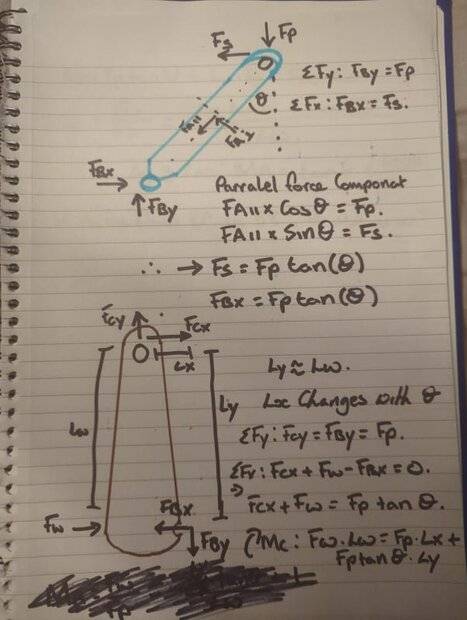 Fs
Fp
ΣFy: FBy = Fp
θ
ΣFx: FBx = Fs.
FA||
FA⊥
FBx
FBy
Parralel force Componat
FA|| x Cosθ = Fp.
FA|| x Sinθ = Fs.
∴ → Fs = Fp tan(θ)
FBx = Fp tan(θ)
Fcy
Fcx
Lx
Ly ≈ Lw.
Lw
Ly
Lx Changes with θ
ΣFy: Fcy = FBy = Fp.
ΣFx: Fcx + Fw - FBx = 0.
→ Fcx + Fw = Fp tan θ.
Fw
FBx
FBy
Mc: Fw.Lw = Fp.Lx +
Fp tanθ . Ly
Fp